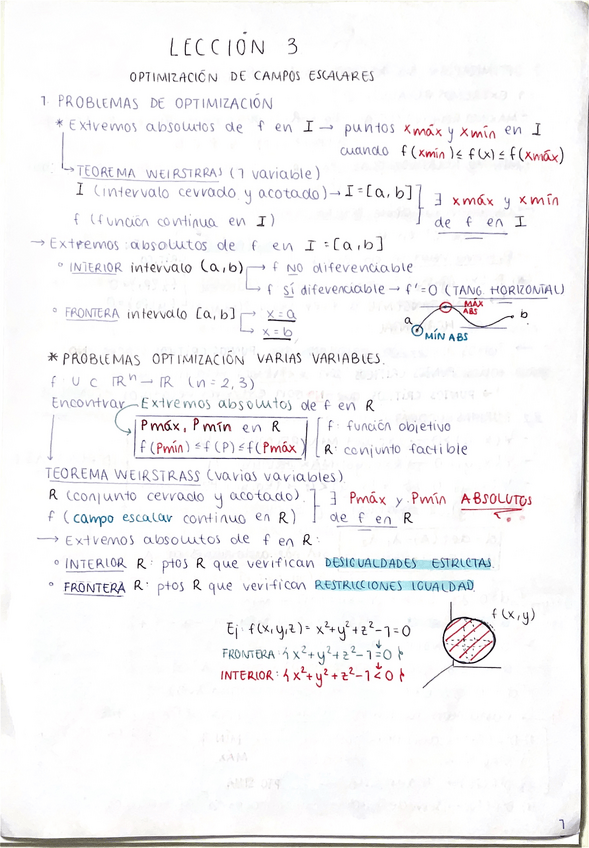 LECCIÓN 3
OPTIMIZACIÓN DE CAMPOS ESCALARES
1. PROBLEMAS DE OPTIMIZACIÓN
* Extremos absolutos de f en I → puntos xmáx y xmín en I
cuando f(xmín) ≤ f(x) ≤ f(xmáx)
↳ TEOREMA WEIRSTRRAS (1 variable)
I (intervalo cerrado y acotado) → I = [a, b]
f (función continua en I)
∃ xmáx y xmín
de f en I
→ Extremos absolutos de f en I = [a, b]
° INTERIOR intervalo (a, b) → f NO diferenciable
↳ f SÍ diferenciable → f' = 0 (TANG. HORIZONTAL)
° FRONTERA intervalo [a, b] → x = a
→ x = b
a
MÁX
ABS
b
MÍN ABS
* PROBLEMAS OPTIMIZACIÓN VARIAS VARIABLES.
f U ⊂ ℝⁿ → ℝ (n = 2, 3)
Encontrar Extremos absolutos de f en R
Pmáx, Pmín en R
f(Pmín) ≤ f(P) ≤ f(Pmáx)
f: función objetivo
R: conjunto factible
TEOREMA WEIRSTRASS (varias variables)
R (conjunto cerrado y acotado).
f (campo escalar continuo en R)
∃ Pmáx y Pmín ABSOLUTOS
de f en R
→ Extremos absolutos de f en R:
° INTERIOR R: ptos R que verifican DESIGUALDADES ESTRICTAS.
° FRONTERA R: ptos R que verifican RESTRICCIONES IGUALDAD.
Ej: f(x,y,z) = x²+y²+z²-1=0
FRONTERA: {x²+y²+z²-1=0}
INTERIOR: {x²+y²+z²-1<0}
f(x,y)
1